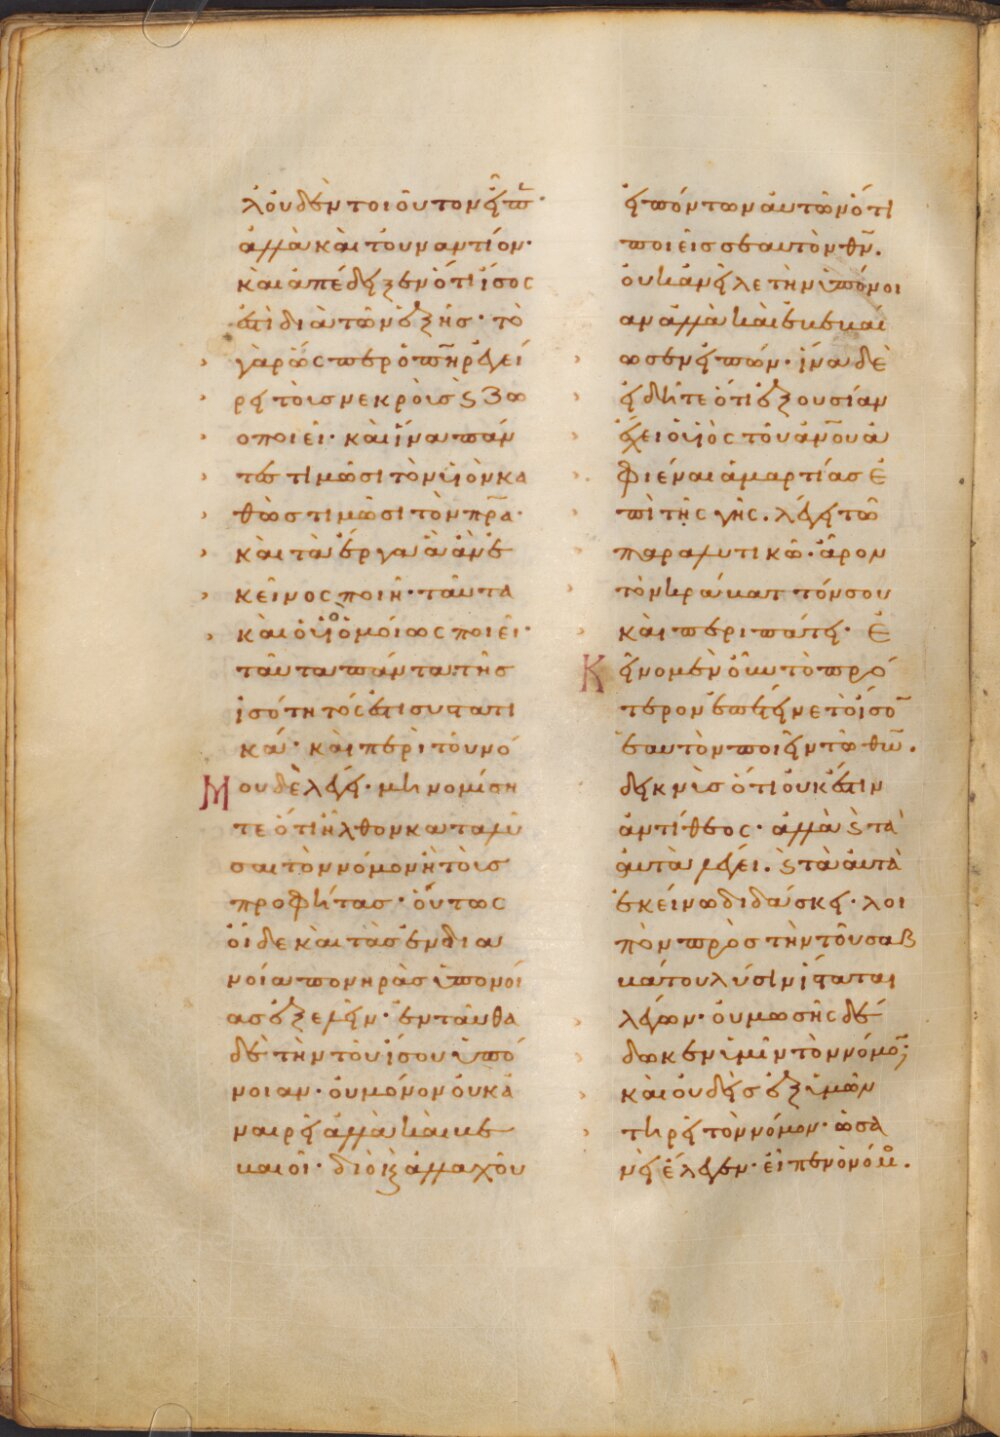 λ' οὐδὲν τοιοῦτον εἶπ·
ἀλλὰ καὶ τοὐναντίον·
καὶ ἀπέδειξεν ὅτι ἴσος
ἐστὶ διὰ τῶν ἑξῆς· τὸ
γὰρ ὥσπερ ὁ πη̅ρ ἐγεί
ρει τοὺς νεκροὺς ϗ ζω
οποιεῖ· καὶ ἵνα πάν
τες τιμῶσι τὸν υἱὸν κα
θὼς τιμῶσι τὸν πρ̅α·
καὶ τὰ ἔργα ἃ ἂν ἐ
κεῖνος ποιῆ· ταῦτα
καὶ ὁ υἱὸς ὁμοίως ποιεῖ·
ταῦτα πάντα τῆς
ἰσότητός ἐστι συστατι
κά· καὶ περὶ τοῦ νό
μου δὲ λέγει· μὴ νομίση
τε ὅτι ἦλθον καταλῦ
σαι τὸν νόμον ἢ τοὺς
προφήτας· οὕτως
οἶδε καὶ τὰς ἐν δια
νοία πονηρὰς ὑπονοί
ας ἐξελεῖν· ἐνταῦθα
δὲ τὴν τοῦ ἴσου ὑπό
νοιαν· οὐ μόνον οὐκ ἀ
ναιρεῖ ἀλλὰ καὶ βε
βαιοῖ· διὸ ϗ ἀλλαχοῦ
εἰπόντων αὐτῶν ὅτι
ποιεῖς σεαυτὸν θν̅.
οὐκ ἀνεῖλε τὴν ὑπόνοι
αν ἀλλὰ καὶ ἐβεβαί
ωσεν εἰπών· ἵνα δὲ
εἰδῆτε ὅτι ἐξουσίαν
ἔχει ὁ υἱὸς τοῦ ἀν̅ου ἀ
φιέναι ἁμαρτίας ἐ
πὶ τῆς γῆς. λέγει τῶ
παραλυτικῶ· ἆρον
τὸν κράβαττόν σου
καὶ περιπάτει· Ἐ
Κεῖνο μὲν οὖν τὸ πρό
τερον ἐπήγνετο ἴσο̅
ἑαυτὸν ποιεῖν τῶ θω̅.
δεικνὺς ὅτι οὐκ ἔστιν
ἀντίθεος· ἀλλὰ ϗ τὰ
αὐτὰ λέγει. ϗ τὰ αὐτὰ
ἐκείνω διδάσκει· λοι
πὸν πρὸς τὴν τοῦ σαβ
βάτου λύσιν ἵσταται
λέγων· οὐ μωσῆς δέ
δωκεν ὑμῖν τὸν νόμο̅;
καὶ οὐδεὶς ἐξ ὑμῶν
τηρεῖ τὸν νόμον· ὡσα
νεὶ ἔλεγεν· εἶπεν ὁ νόμ̊.